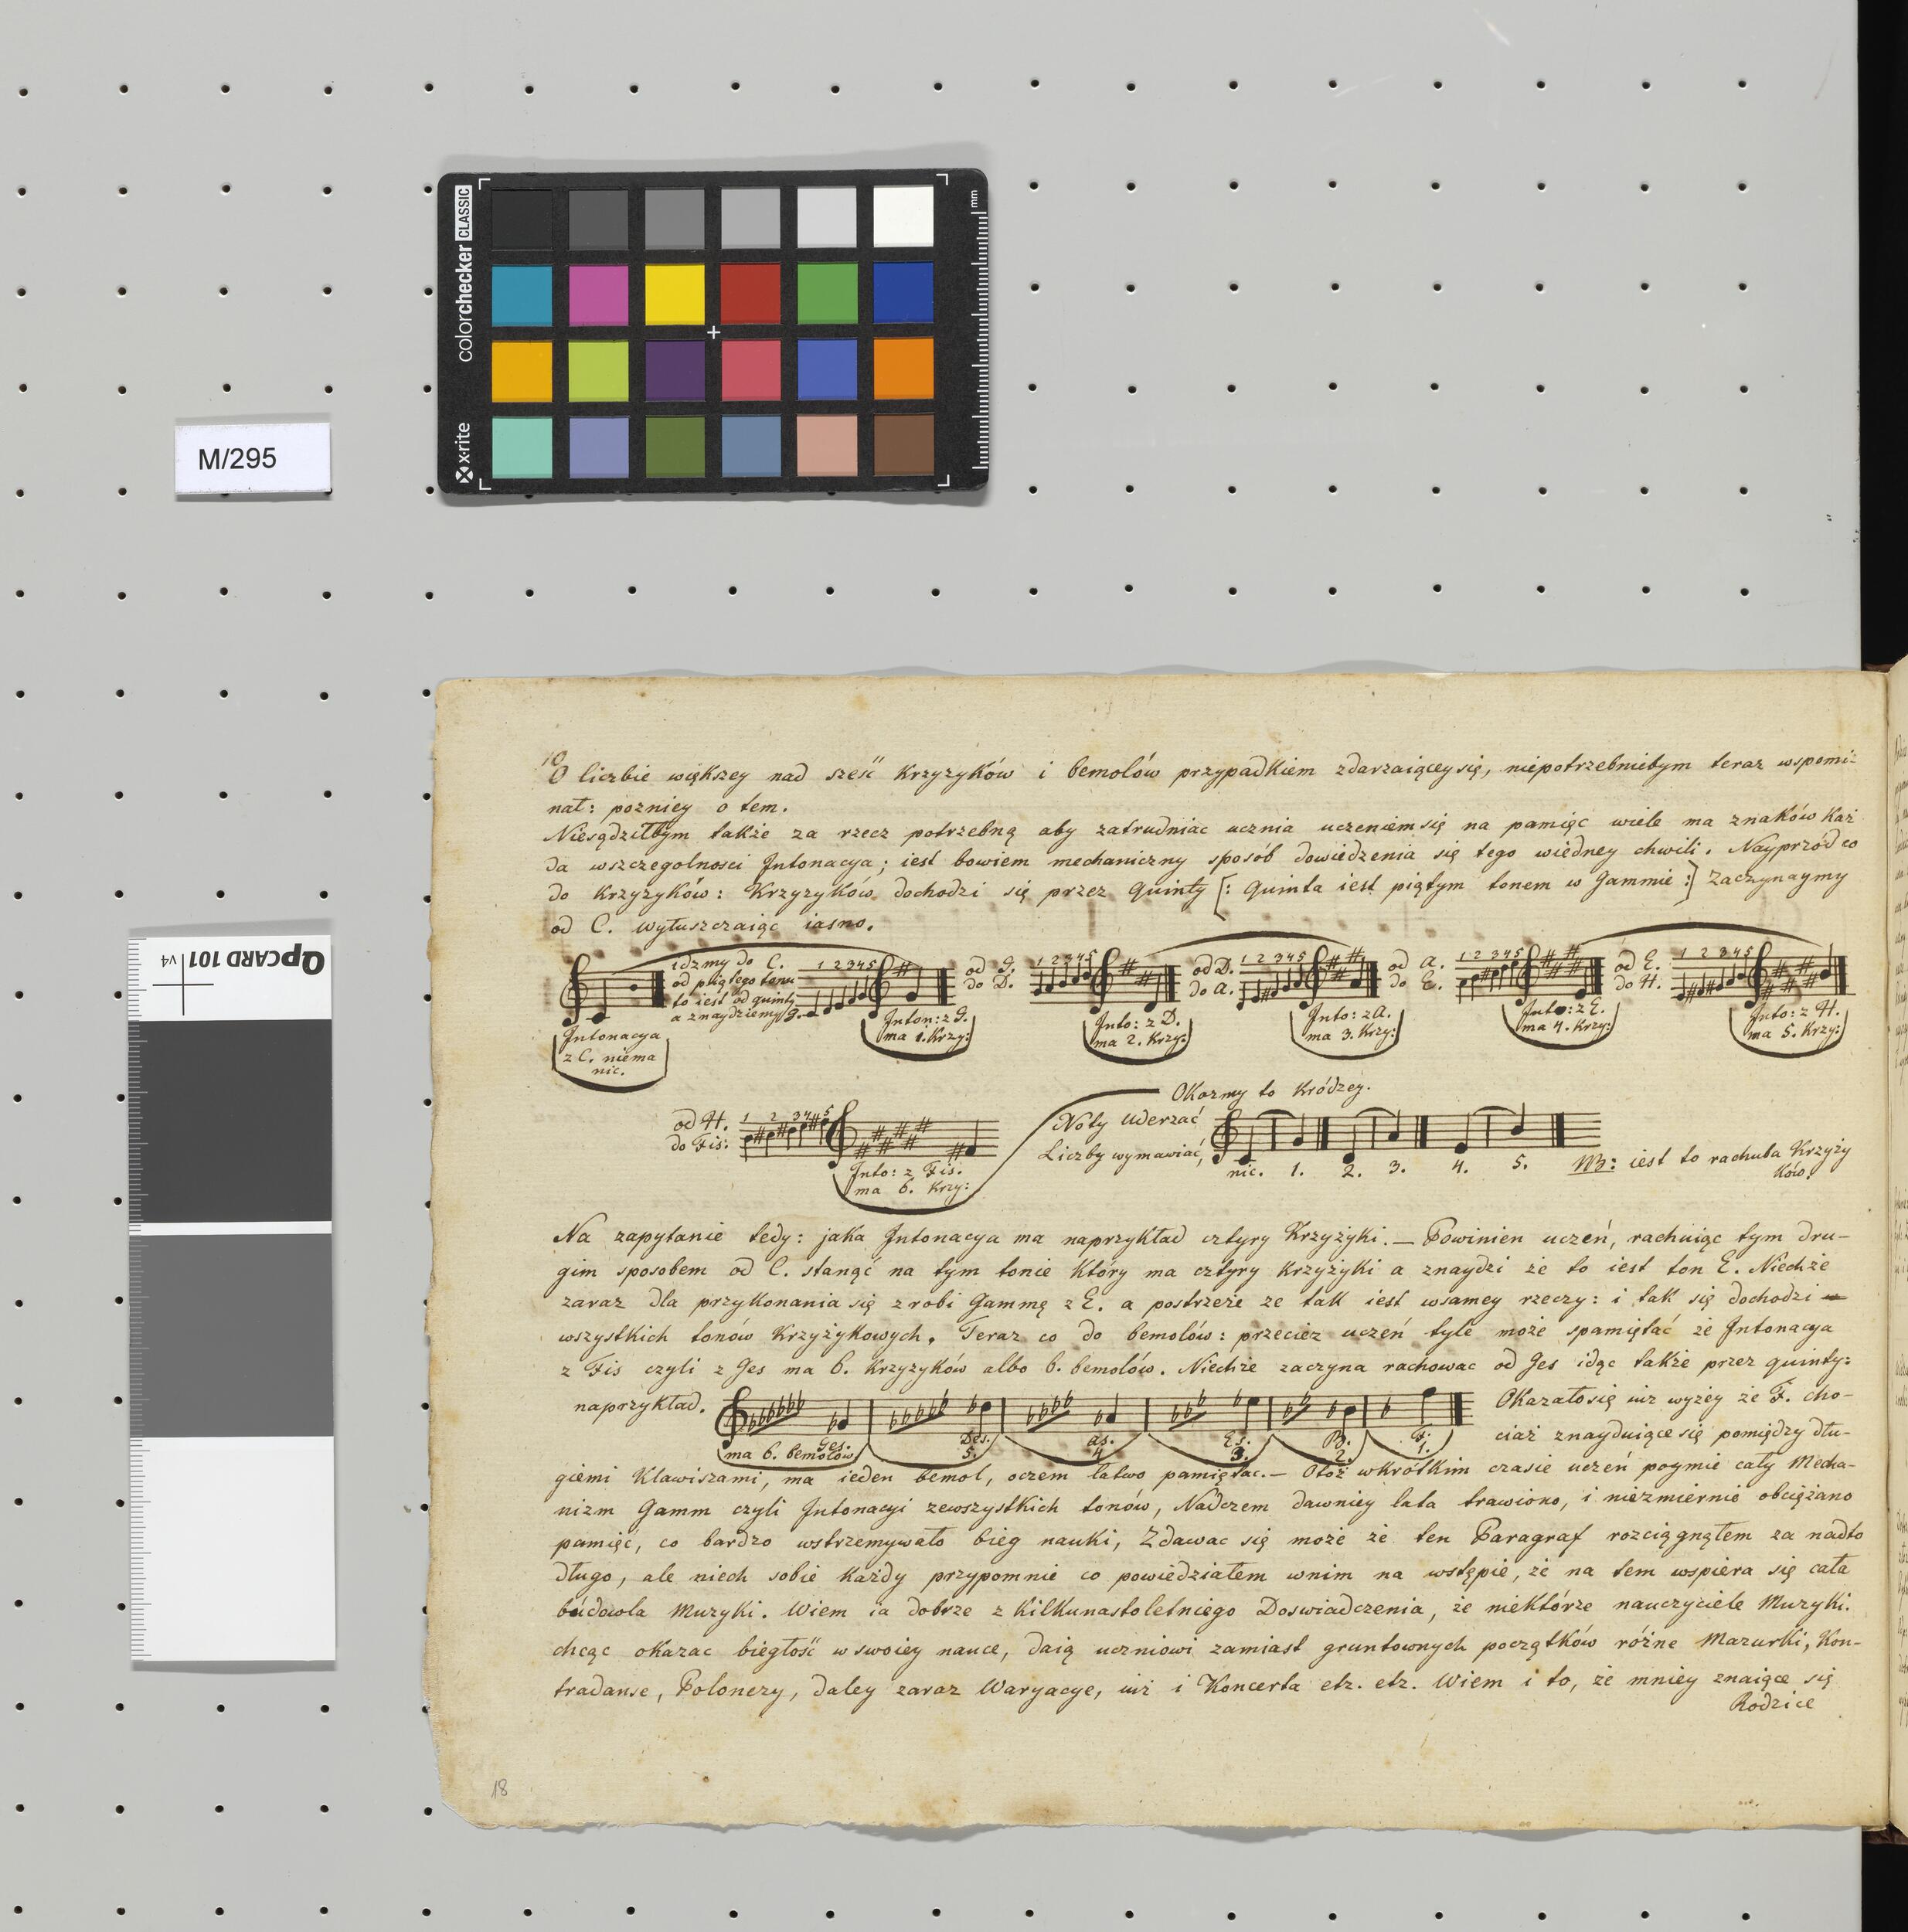 colorchecker CLASSIC
x-rite
mm
M/295
QPCARD 101 v4
10
O liczbie większey nad sześć Krzyzyków i bemolów przypadkiem zdarzaiącey się, niepotrzebniebym teraz wspomi-
nał: pozniey o tem.
Niesądziłbym także za rzecz potrzebną aby zatrudniac ucznia uczeniem się na pamięc wiele ma znaków Każ
da wszczegolnosci Jntonacya; iest bowiem mechaniczny sposób dowiedzenia się tego wiedney chwili. Nayprzód co
do Krzyzyków: Krzyzyków dochodzi się przez Quinty [: Quinta iest piątym tonem w Gammie :] Zaczynaymy
od C. wyłuszczaiąc iasno.
idzmy do C.
od piątego tonu
to iest od quinty
a znaydziemy G.
1 2 3 4 5
od G.
do D.
1 2 3 4 5
od D.
do A.
1 2 3 4 5
od A.
do E.
1 2 3 4 5
od E.
do H.
1 2 3 4 5
Jntonacya
z C. niema
nic.
Jnton: z G.
ma 1. Krzy:
Jnto: z D.
ma 2. Krzy:
Jnto: z A.
ma 3. Krzy:
Jnto: z E.
ma 4. Krzy:
Jnto: z H.
ma 5. Krzy:
od H.
do Fis:
1 2 3 4 5
Jnto: z Fis.
ma 6. Krzy:
Okazmy to Kródzey.
Noty uderzać
Liczby wymawiać,
nic. 1. 2. 3. 4. 5.
NB: iest to rachuba Krzyży
ków.
Na zapytanie tedy: jaka Jntonacya ma naprzykład cztyry Krzyżyki. — Powinien uczeń, rachuiąc tym dru-
gim sposobem od C. stanąć na tym tonie Który ma cztyry Krzyżyki a znaydzi że to iest ton E. Niechże
zaraz dla przykonania się zrobi Gammę z E. a postrzeże ze tak iest wsamey rzeczy: i tak się dochodzi
wszystkich tonów Krzyżykowych. Teraz co do bemolów: przecież uczeń tyle może spamiętać że Jntonacya
z Fis czyli z Ges ma 6. Krzyzyków albo 6. bemolów. Niechże zaczyna rachowac od Ges idąc także przez quinty:
naprzykład.
Ges.
ma 6. bemolów
Des.
5.
As.
4
Es.
3.
B.
2.
F.
1.
Okazało się iuz wyżey że F. cho-
ciaż znayduiące się pomiędzy dłu-
giemi Klawiszami, ma ieden bemol, oczem łatwo pamiętac. — Otoż wkrótkim czasie uczeń poymie cały Mecha-
nizm Gamm czyli Jntonacyi zewszystkich tonów, Nadczem dawniey lata trawiono, i niezmiernie obciężano
pamięć, co bardzo wstrzemywało bieg nauki, Zdawac się może że ten Paragraf rozciągnąłem za nadto
długo, ale niech sobie Każdy przypomnie co powiedziałem wnim na wstępie, że na tem wspiera się cała
budowla Muzyki. Wiem ia dobrze z Kilkunastoletniego Doswiadczenia, że niektórze nauczyciele Muzyki.
chcąc okazac biegłość w swoiey nauce, daią uczniowi zamiast gruntownych początków różne Mazurki, Kon-
tradanse, Polonezy, daley zaraz Waryacye, iuż i Koncerta etz. etz. Wiem i to, że mniey znaiące się
Rodzice
18